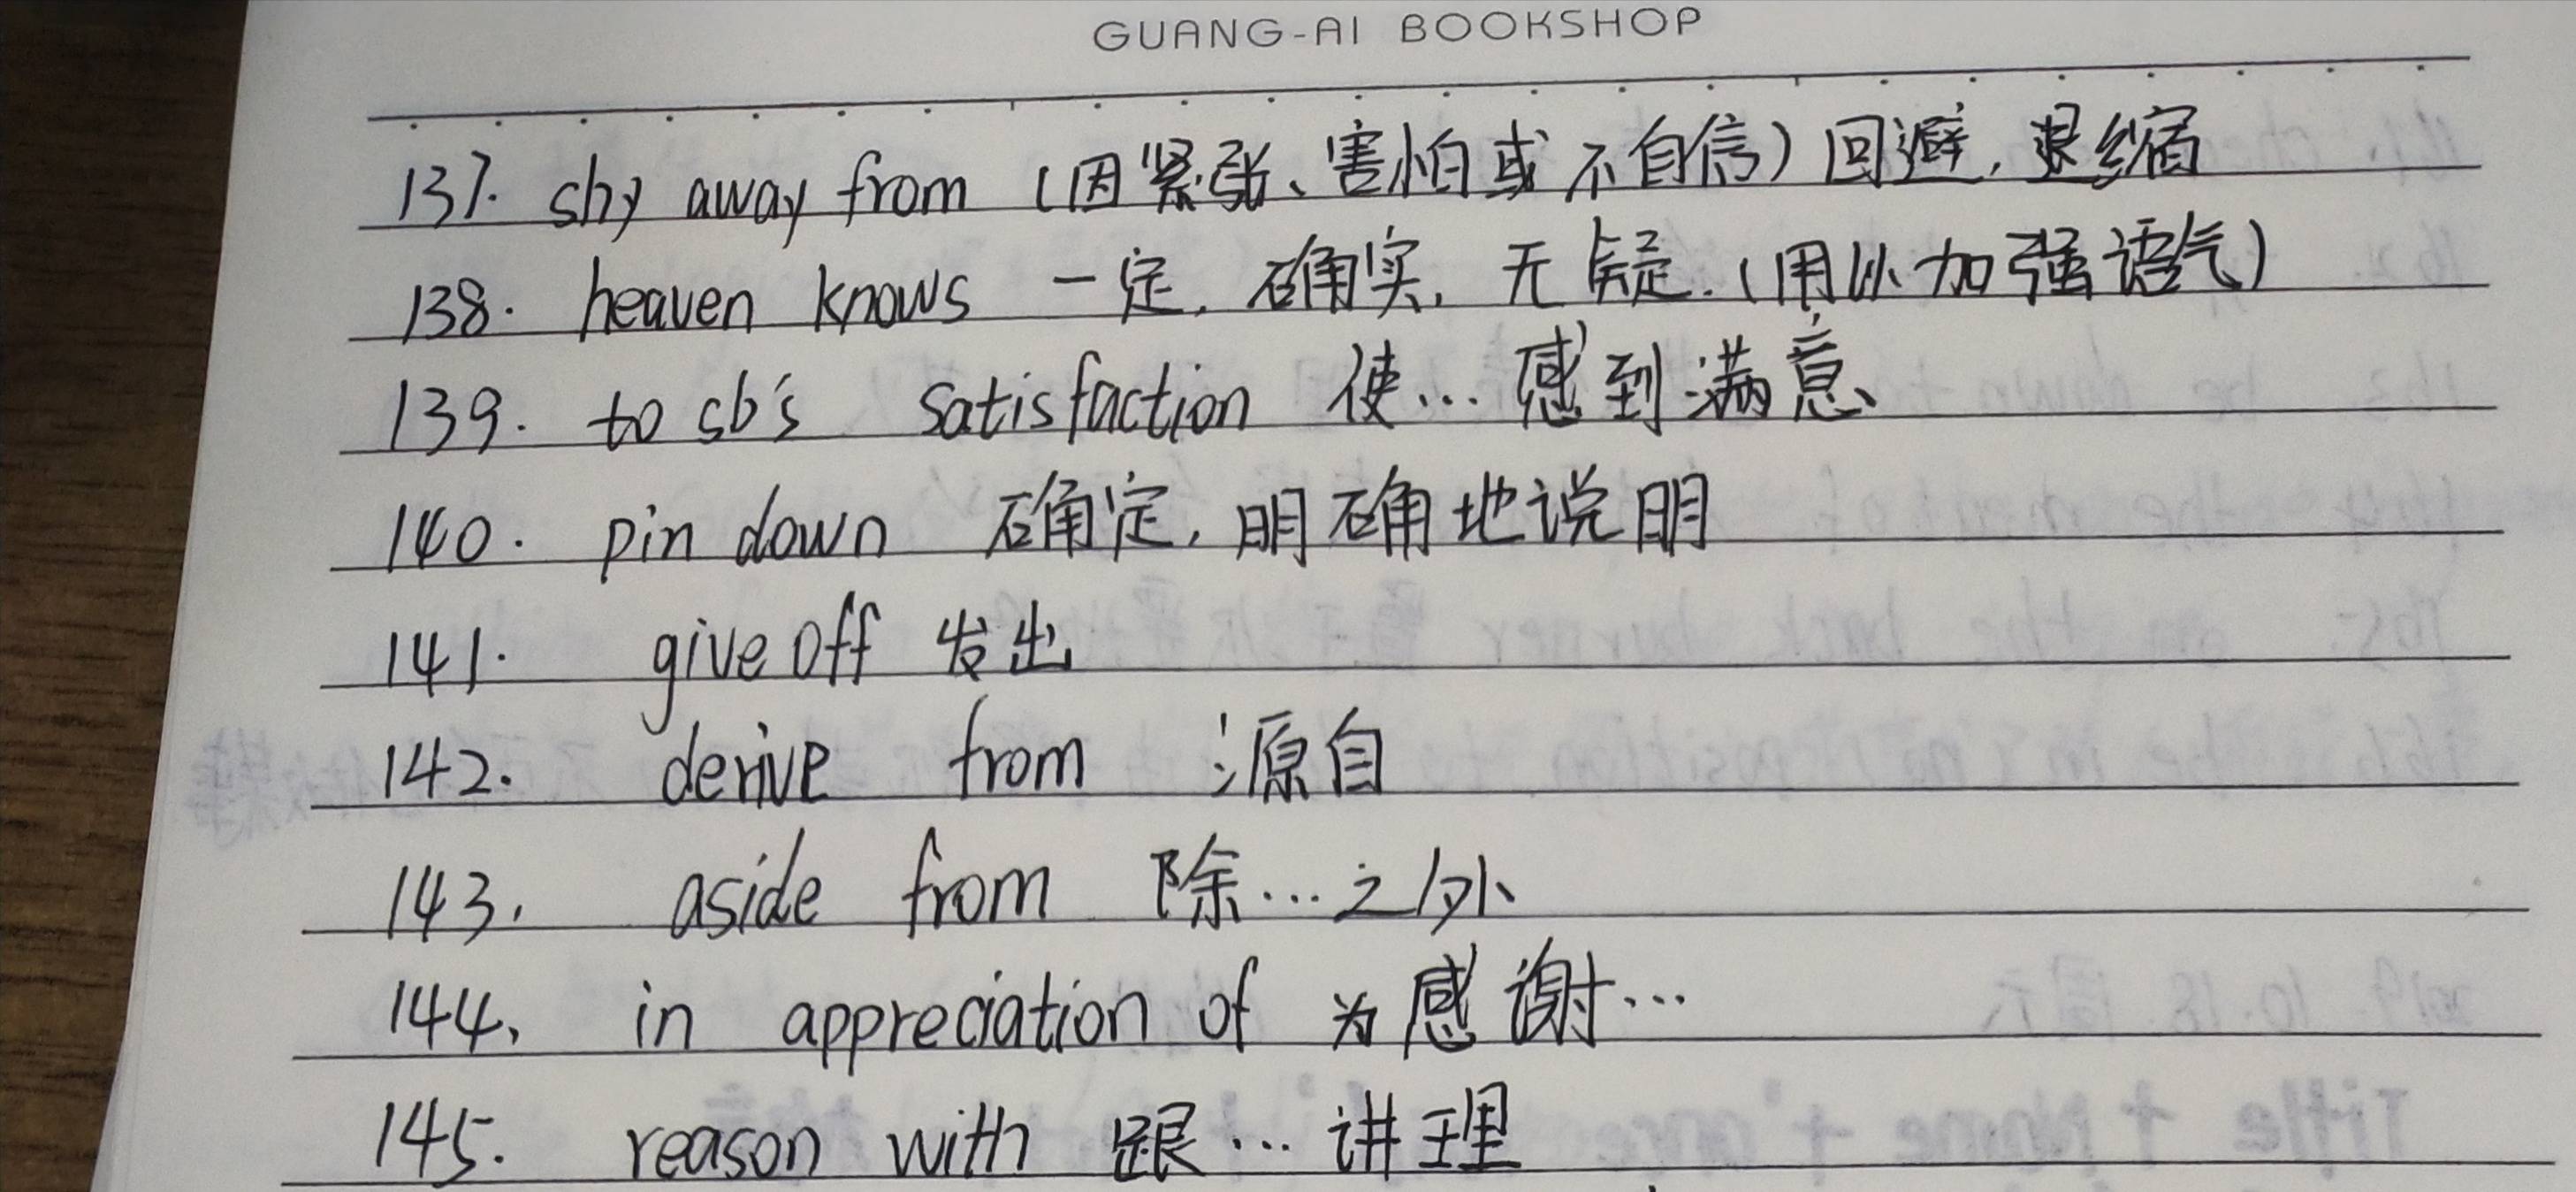 GUANG-AI BOOKSHOP
137. shy away from (因紧张、害怕或不自信)回避,退缩
138. heaven knows 一定,确实,无疑.(用以加强语气)
139. to sb's satisfaction 使…感到满意
140. pin down 确定,明确地说明
141. give off 发出
142. derive from 源自
143. aside from 除…之外
144. in appreciation of 为感谢…
145. reason with 跟…讲理